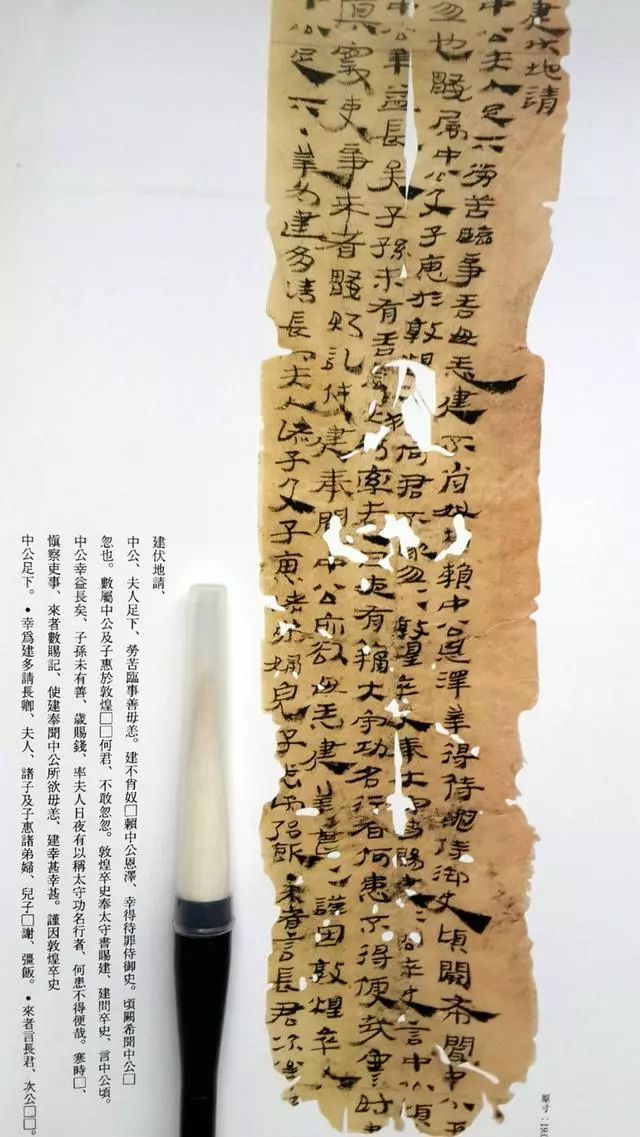 建伏地請
中公夫人足下勞苦臨事善毋恙建不肖奴賴中公恩澤幸得待罪侍御史頃闕希聞中公
忽也數屬中公及子惠於敦煌何君不敢忽忽敦煌卒史奉大守書賜建問卒史言中公頃
中公幸益長矣子孫未有善歲賜錢率夫人日夜有以稱大守功名行者何患不得便哉寒時
慎察吏事來者數賜記使建奉聞中公所欲毋恙建幸甚謹因敦煌卒史
中公足下・幸為建多請長卿夫人諸子及子惠諸弟婦兒子謝彊飯・來者言長君次公
原寸：19
建伏地請、
中公、夫人足下、勞苦臨事善毋恙。建不肖奴□賴中公恩澤、幸得待罪侍御史。頃闕希聞中公□
忽也。數屬中公及子惠於敦煌□□何君、不敢忽忽。敦煌卒史奉太守書賜建、建問卒史、言中公頃。
中公幸益長矣、子孫未有善、歲賜錢、率夫人日夜有以稱太守功名行者、何患不得便哉。寒時□、
慎察吏事、來者數賜記、使建奉聞中公所欲毋恙、建幸甚幸甚。謹因敦煌卒史
中公足下。・幸爲建多請長卿、夫人、諸子及子惠諸弟婦、兒子□謝、彊飯。・來者言長君、次公□□。